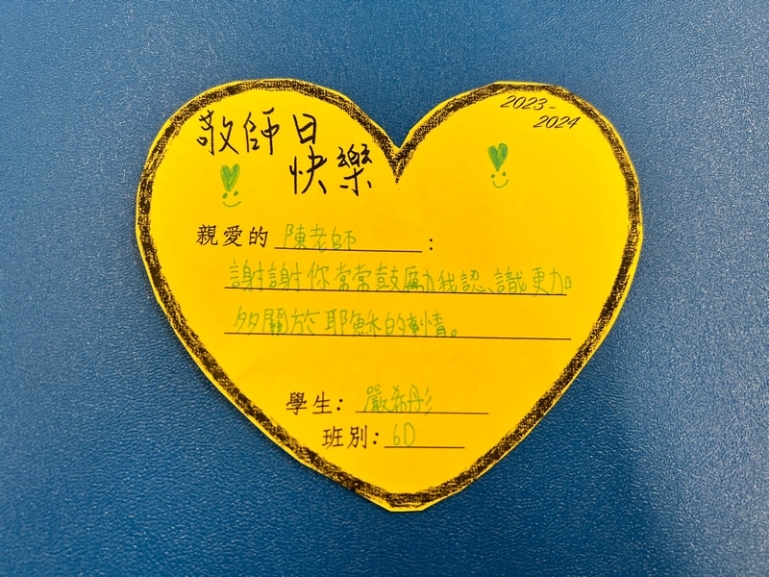 敬師日
快樂
2023-
2024
親愛的 陳老師 :
謝謝你常常鼓勵我認識更加
多關於耶穌的事情。
學生: 嚴希彤
班別: 6D